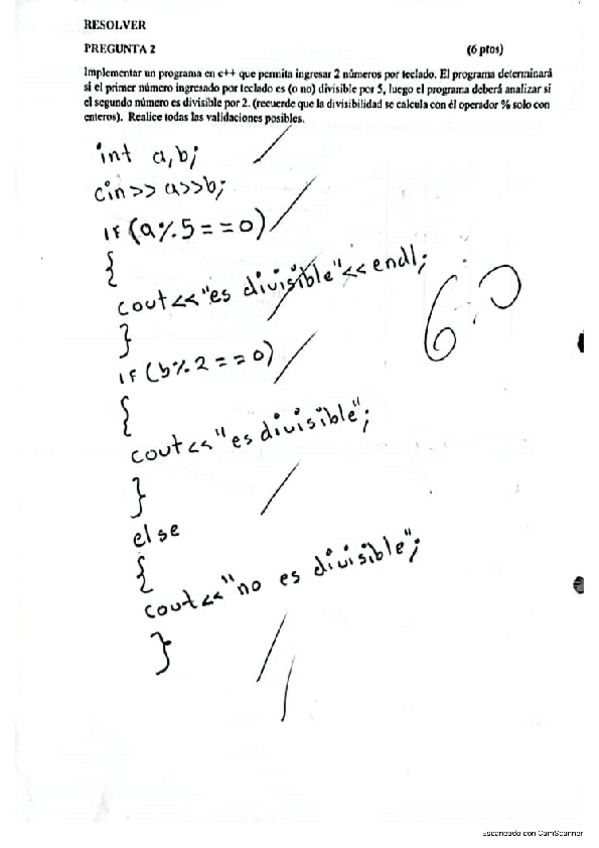 RESOLVER
PREGUNTA 2 (6 ptos)
Implementar un programa en c++ que permita ingresar 2 números por teclado. El programa determinará
si el primer número ingresado por teclado es (o no) divisible por 5, luego el programa deberá analizar si
el segundo número es divisible por 2. (recuerde que la divisibilidad se calcula con él operador % solo con
enteros). Realice todas las validaciones posibles.
int a,b;
cin>> a>>b;
if (a%5==0)
{
cout<<"es divisible"<<endl;
}
6.0
if (b%2==0)
{
cout<<"es divisible";
}
else
{
cout<<"no es divisible";
}
Escaneado con CamScanner